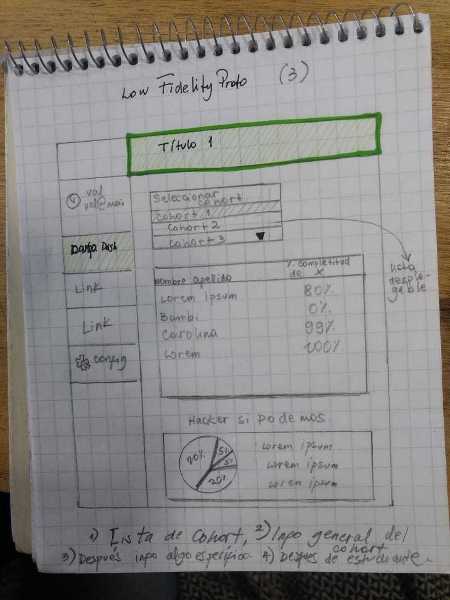 Low Fidelity Proto (3)
Título 1
val
val@mail
Seleccionar
cohort
cohort 1
cohort 2
cohort 3
Link
Link
config
lista
desple-
gable
Nombre apellido % completitud
de X
Lorem Ipsum 80%
Bambi 0%
Carolina 99%
Lorem 100%
Hacker si podemos
70% 5%
5%
20%
Lorem ipsum
Lorem ipsum
Lorem ipsum
1) Lista de Cohort, 2) Info general del
cohort
3) Después info algo específica 4) Después de estudiante.